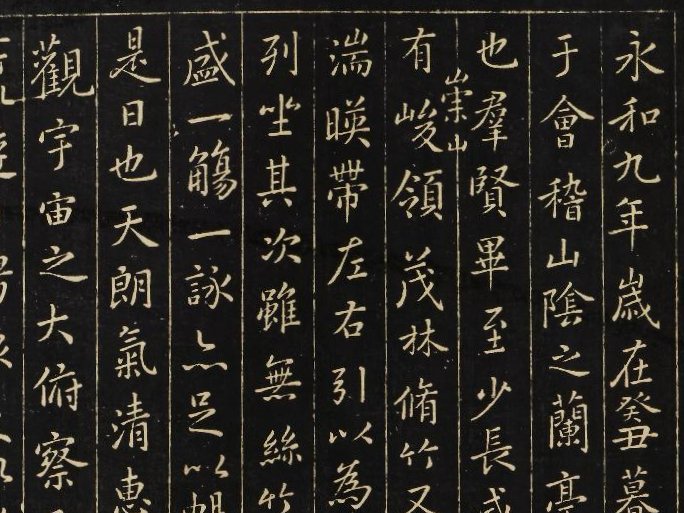 永和九年歲在癸丑暮
于會稽山陰之蘭亭
也羣賢畢至少長咸
有崇山峻領茂林脩竹又
湍暎帶左右引以為
列坐其次雖無絲竹
盛一觴一詠亦足以暢
是日也天朗氣清惠
觀宇宙之大俯察